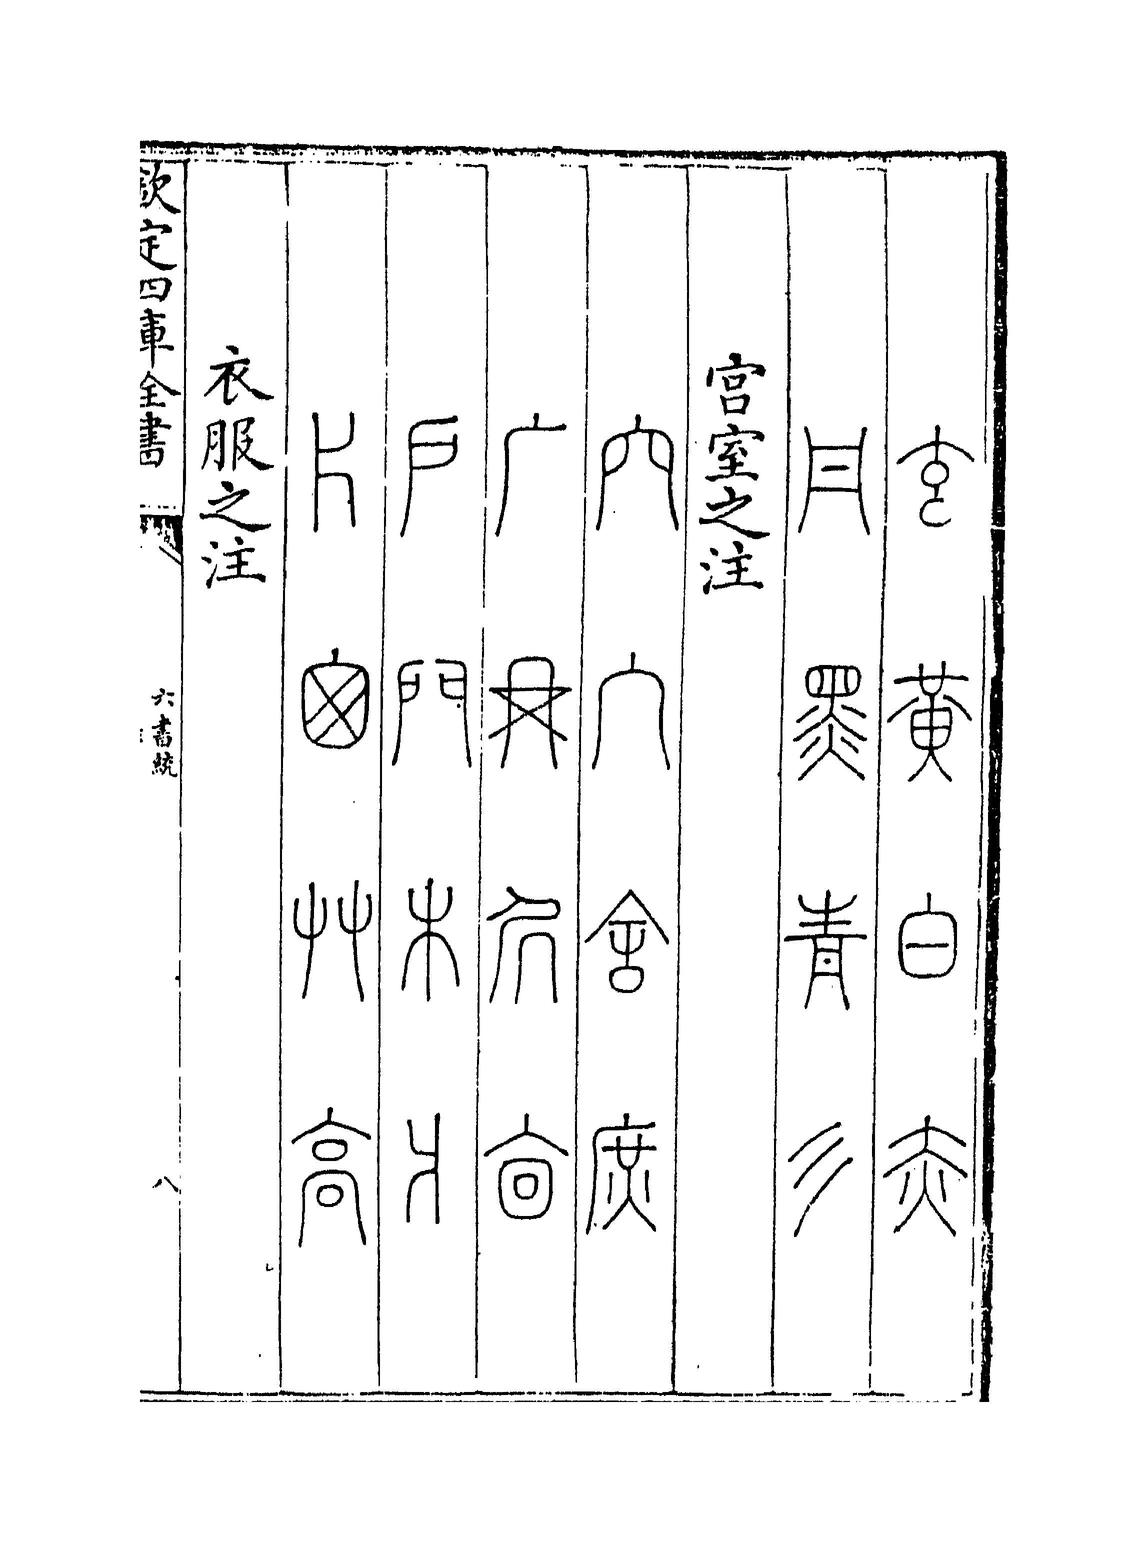 玄黄白赤
丹黑青彡
宫室之注
穴宀舍庶
广㐭
戶門木爿
片囱艸高
衣服之注
欽定四庫全書
六書統
八